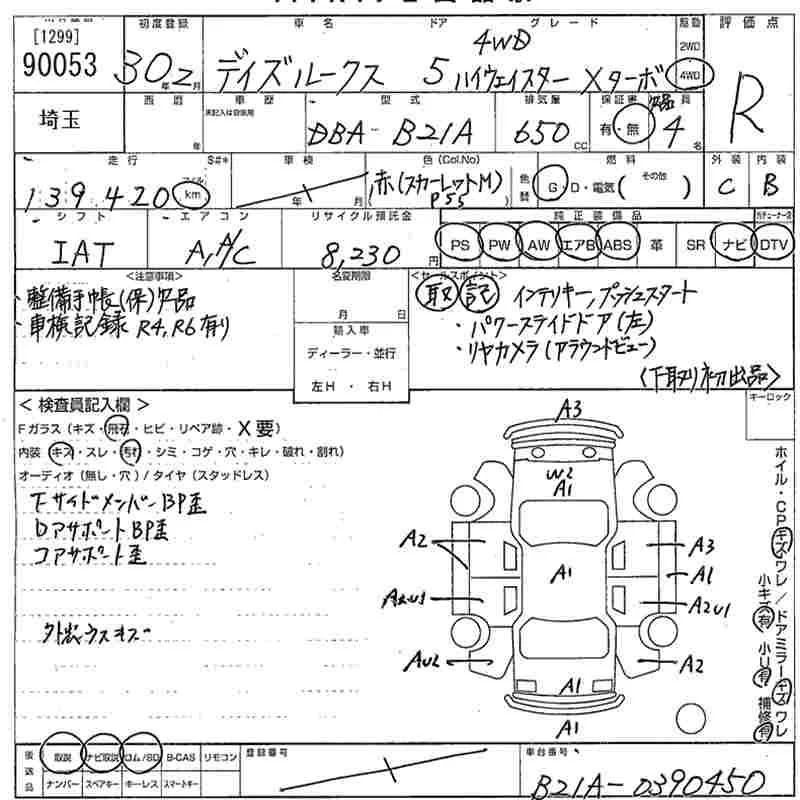 [1299]
90053
初度登録
30年2月
車名
デイズルークス
ドア
5
グレード
4WD
ハイウェイスター Xターボ
駆動
2WD
4WD
評価点
R
埼玉
西暦
年
車歴
未記入は自家用
型式
DBA-B21A
排気量
650
CC
保証書
有・無
欠品
員
4
名
走行
139,420
マイル
km
S#*
車検
年 月
色(Col.No)
赤(スカーレットM)
P55
色替
燃料
G・D・電気( その他 )
外装
C
内装
B
シフト
IAT
エアコン
A,A/C
リサイクル預託金
8,230
円
純正装備品
PS PW AW エアB ABS 革 SR ナビ DTV
<注意事項>
・整備手帳(保)欠品
・車検記録 R4,R6有り
名変期限
月 日
輸入車
ディーラー・並行
左H ・ 右H
<セールスポイント>
取 記 インテリキー,プッシュスタート
・パワースライドドア(左)
・リヤカメラ(アラウンドビュー)
<下取り初出品>
キーロック
< 検査員記入欄 >
Fガラス(キズ・飛石・ヒビ・リペア跡・X要)
内装(キズ・スレ・汚れ・シミ・コゲ・穴・キレ・破れ・割れ)
オーディオ(無し・穴)/タイヤ(スタッドレス)
下サイドメンバーBP歪
Dアサポート BP歪
コアサポート歪
外装ウスキズ
A3
W2
A1
A2
A3
A1
A1
A2U1
AU2
A2
A1
A1
ホイル・CPキズワレ/ドアミラーキズワレ
小キズ有 小U有 補修有
後送品
取説 ナビ取説 ロム/SD B-CAS リモコン
ナンバー スペアキー キーレス スマートキー
登録番号
車台番号
B21A-0390450